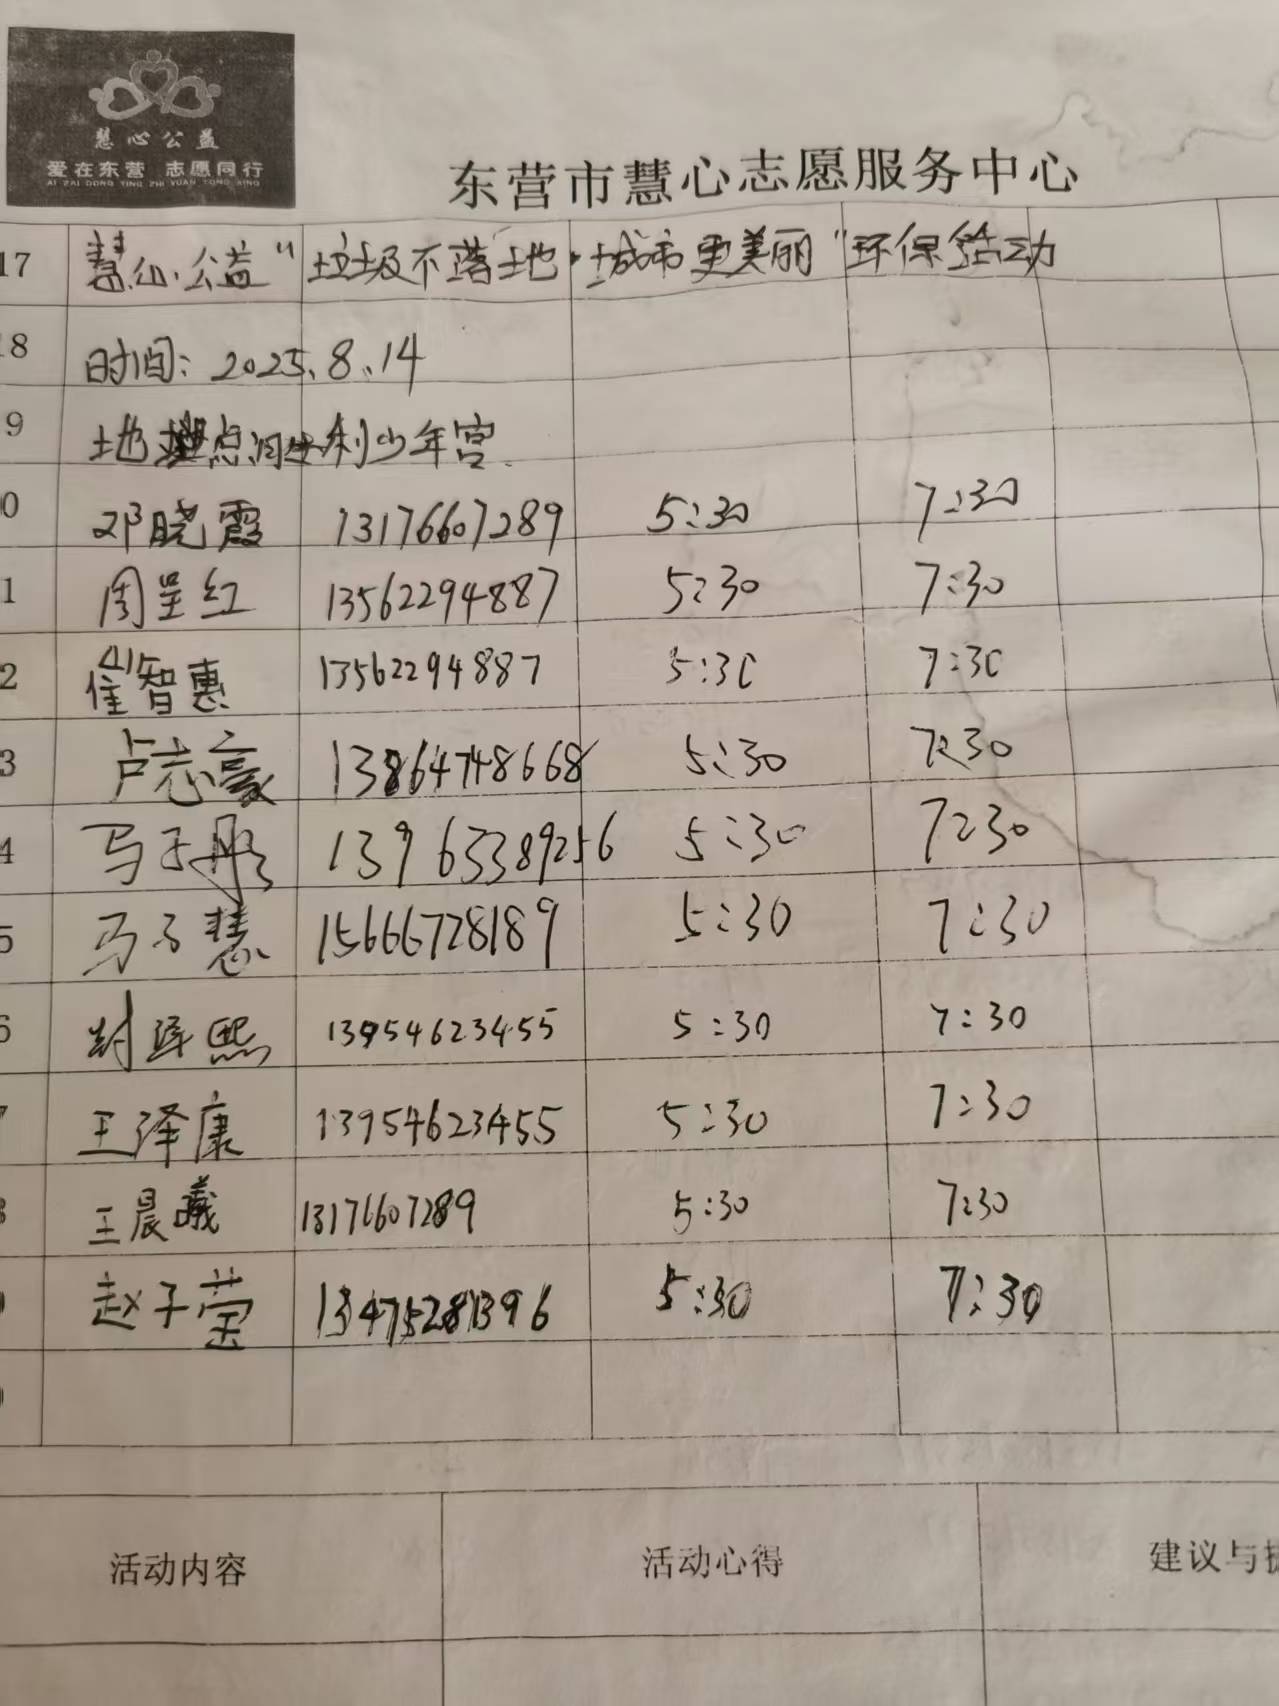 慧心公益
爱在东营 志愿同行
AI ZAI DONG YING ZHI YUAN TONG XING
东营市慧心志愿服务中心
17 慧心公益“垃圾不落地·城市更美丽”环保活动
18 时间：2025.8.14
9 地点 利少年宫
0 邓晓霞 13176607289 5:30 7:30
1 周呈红 13562294887 5:30 7:30
2 崔智惠 13562294887 5:30 7:30
3 卢志豪 13864748668 5:30 7:30
4 马子彤 13963389256 5:30 7:30
5 马子慧 15666728189 5:30 7:30
6 熙 13954623455 5:30 7:30
7 王泽康 13954623455 5:30 7:30
8 王晨曦 13176607289 5:30 7:30
赵子莹 13475281396 5:30 7:30
活动内容 活动心得 建议与